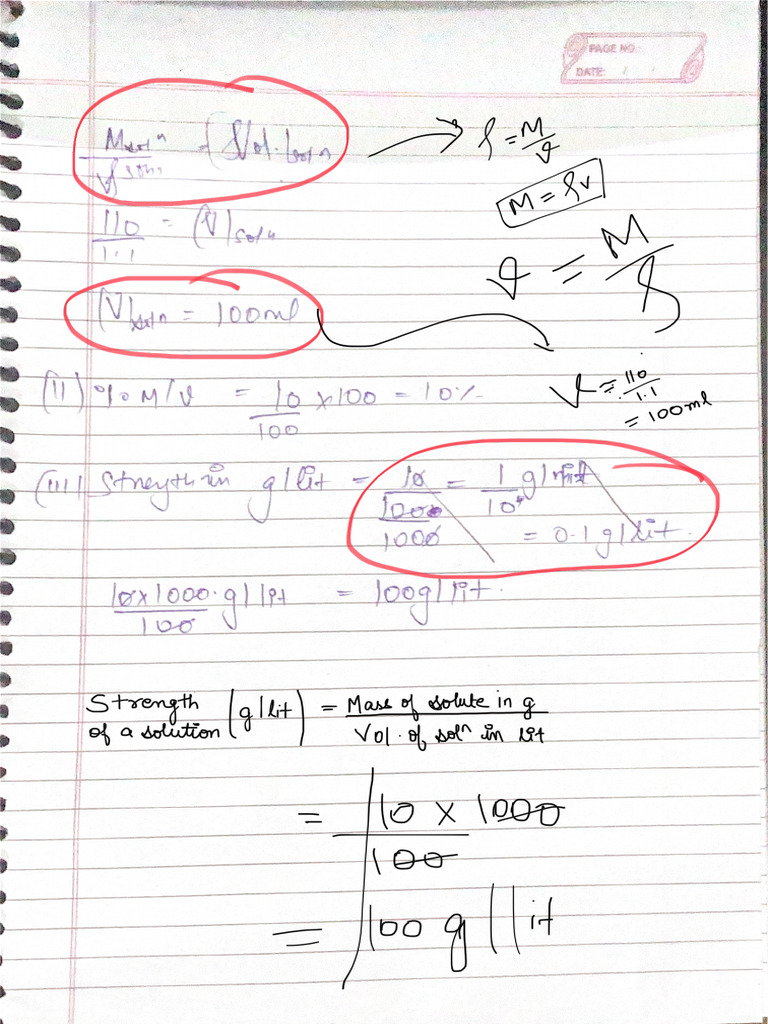 PAGE NO.:
DATE: / /
M solⁿ / V solⁿ = (Vol. solⁿ → ρ = M/V
M = ρV
110/1.1 = (V)solⁿ
V = M/ρ
(V)solⁿ = 100ml
V = 110/1.1
= 100ml
(II) % M/V = 10/100 × 100 = 10%
(III) Strength in g/lit = 10/100/1000 = 1/10 g/lit
= 0.1 g/lit.
10×1000/100 . g/lit = 100g/lit.
Strength of a solution (g/lit) = Mass of solute in g / Vol. of solⁿ in lit
= 10 × 1000 / 100
= 100 g/lit